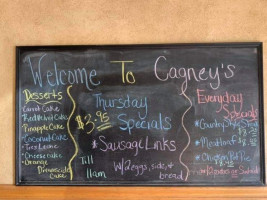 Welcome To Cagney's
Desserts
Carrot Cake
Red Velvet Cake
Pineapple Cake
Coconut Cake
Tres Leche
Cheesecake
Orange
Dreamsicle
Cake
Thursday
$3.95 Specials
*Sausage Links
Till
11am
w/2 eggs, side, &
bread
Everyday
Specials
*Country Style Steak
*Meatloaf
*Chicken Pot Pie